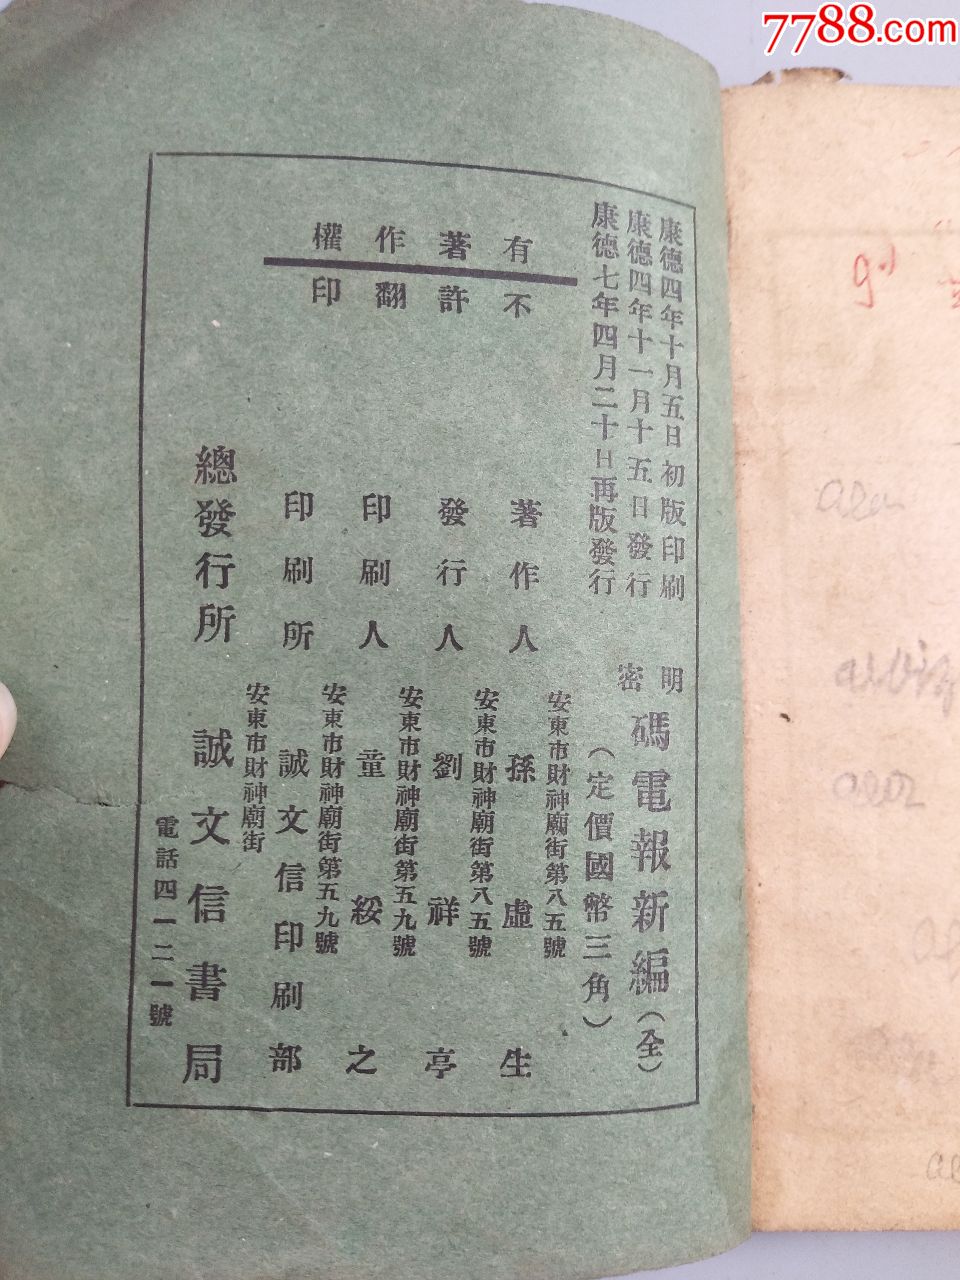 7788.com
康德四年十月五日初版印刷
康德四年十一月十五日發行
康德七年四月二十日再版發行
有著作權
不許翻印
明密碼電報新編（全）
（定價國幣三角）
安東市財神廟街第八五號
著作人 孫虛生
安東市財神廟街第八五號
發行人 劉祥亭
安東市財神廟街第五九號
印刷人 童綏之
安東市財神廟街第五九號
印刷所 誠文信印刷部
安東市財神廟街
總發行所 誠文信書局
電話四一二一號